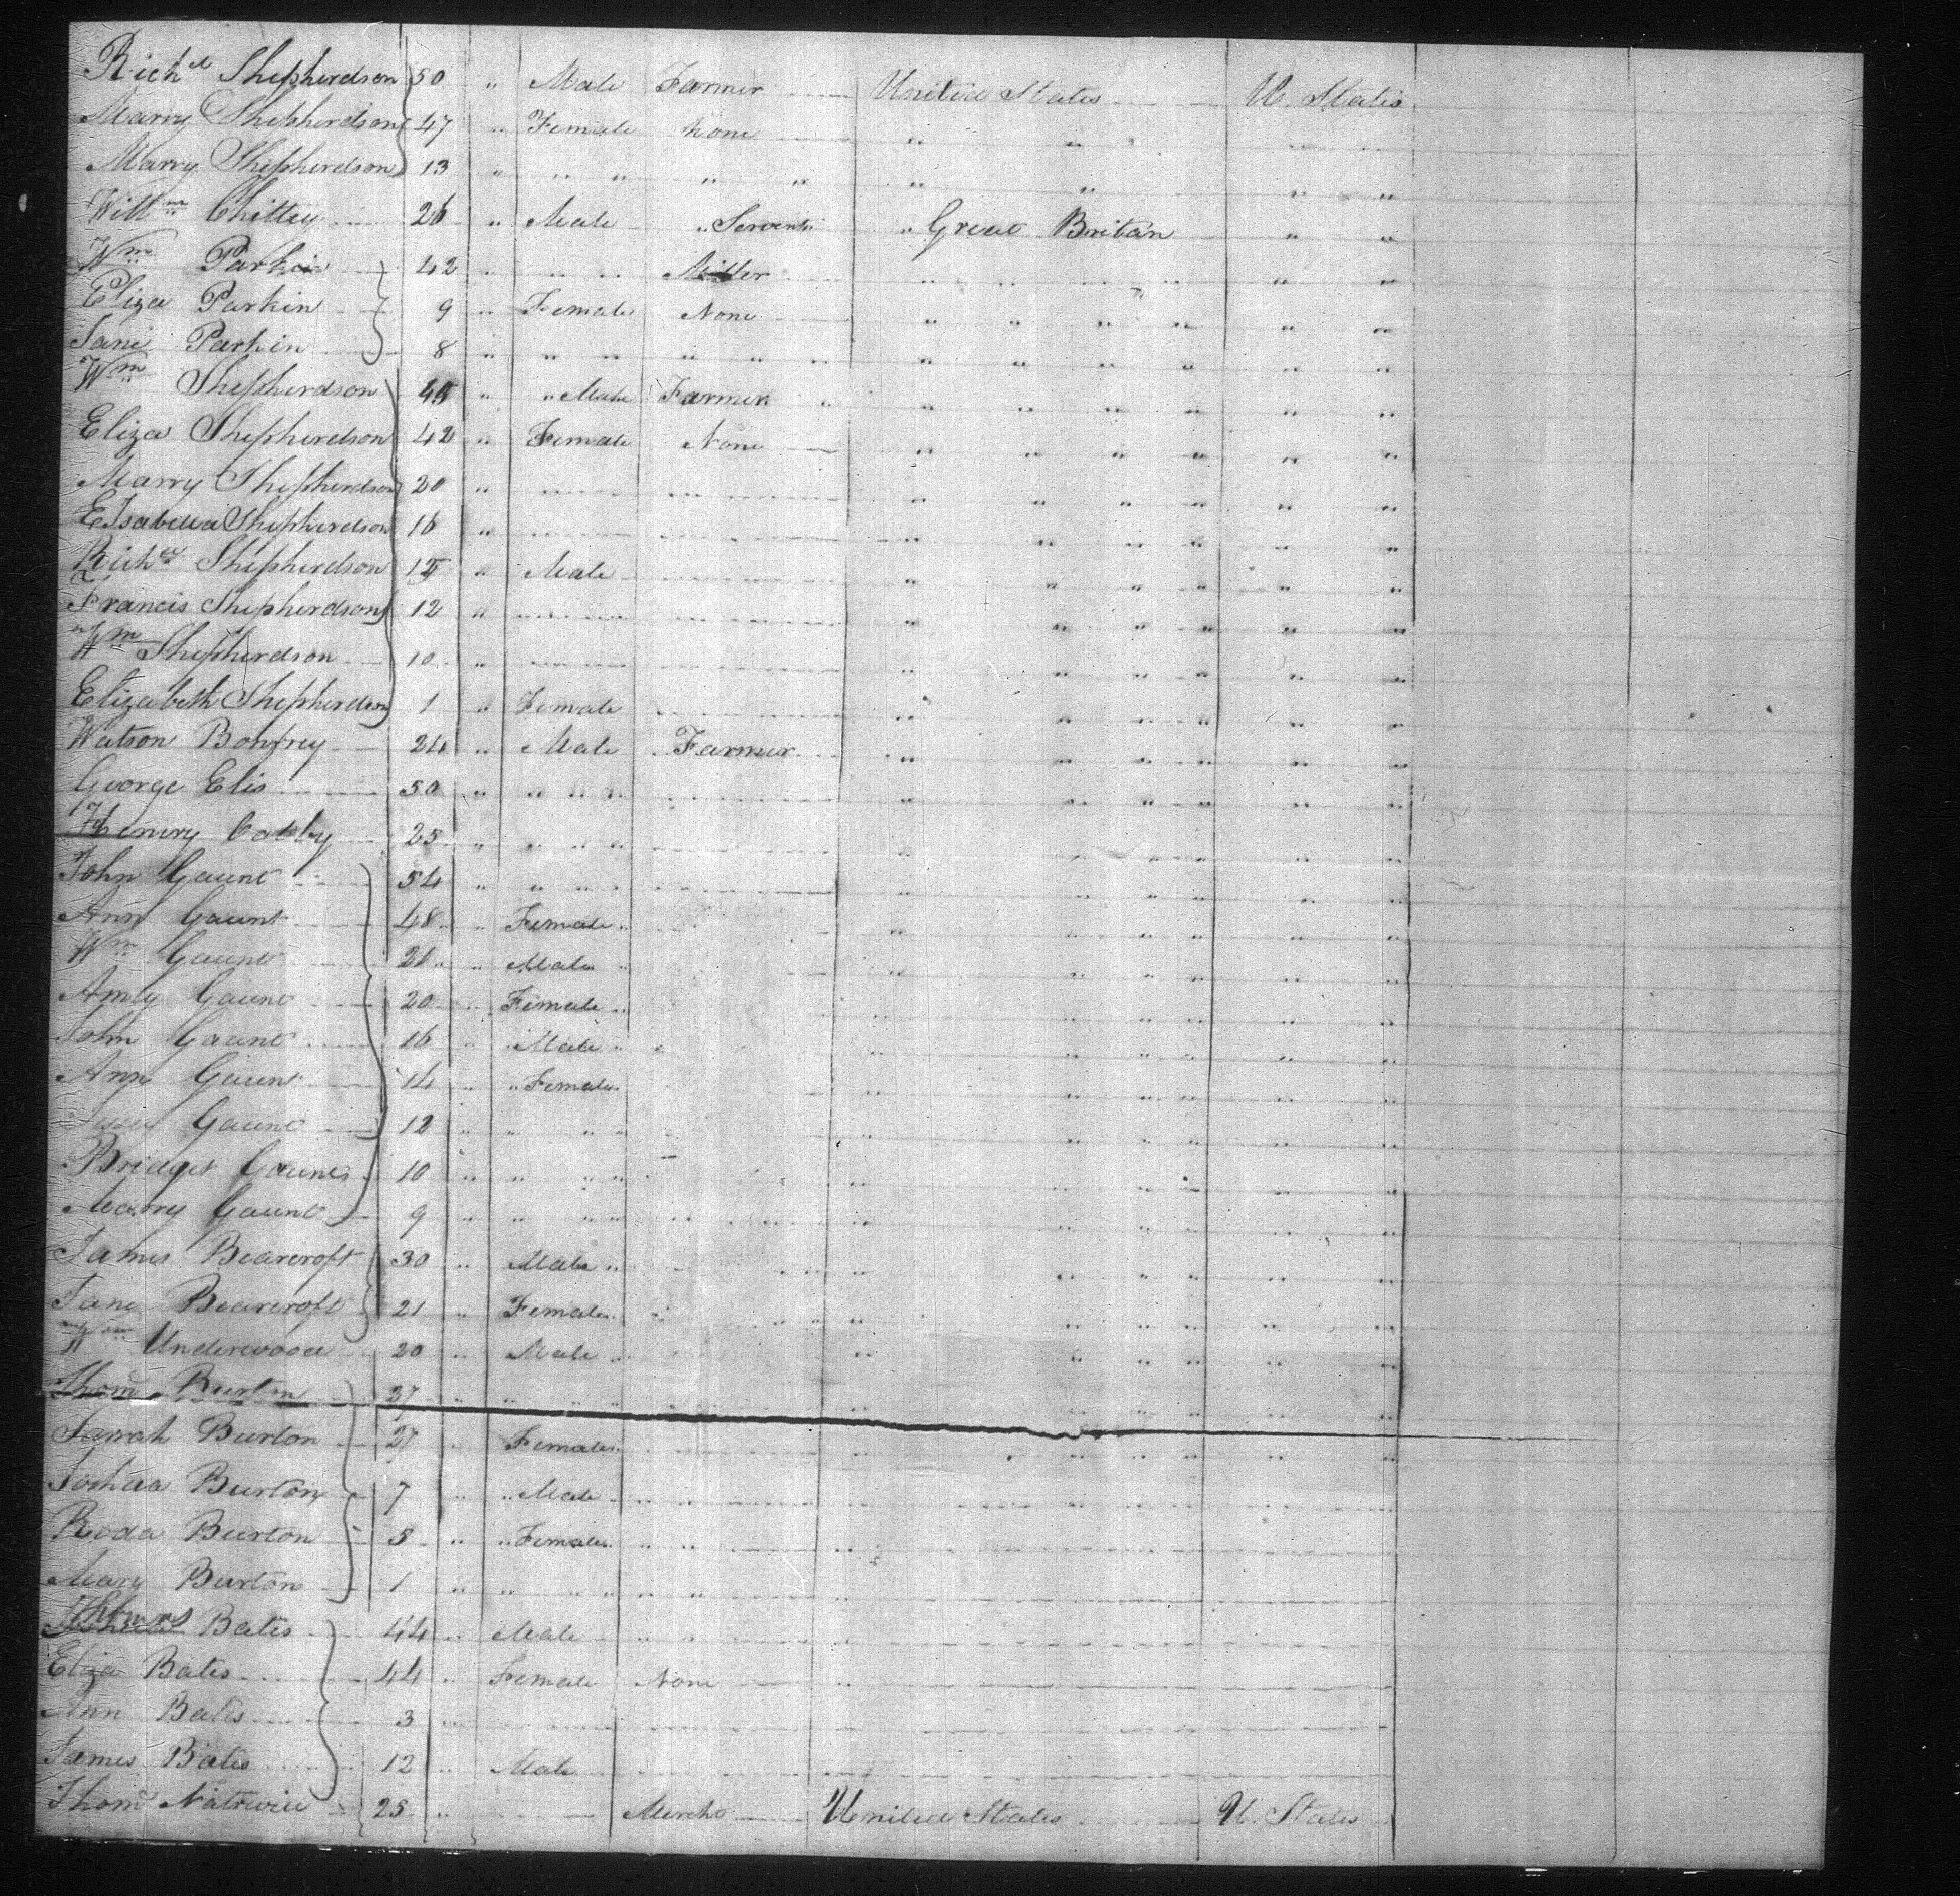 Rich^d Shepherdson 50 " Male Farmer United States U. States
Marry Shepherdson 47 " Female none " " " "
Marry Shepherdson 13 " " " " " " " " "
Will^m Chittey 26 " Male " Servent " Great Britan " "
W^m Parkin 42 " " " Miller " " " " " "
Eliza Parkin 9 " Female None " " " " " "
Jane Parkin 8 " " " " " " " " " " "
W^m Shepherdson " " Male Farmer " " " " " " "
Eliza Shepherdson 42 " Female None " " " " " "
Marry Shepherdson 20 " " " " " " "
E Isabella Shepherdson 16 " " " " " " "
Rich^d Shepherdson " Male " " " " " "
Francis Shepherdson 12 " " " " " " "
W^m Shepherdson 10 " " " " " " "
Elizabeth Shepherdson 1 " Female " " " " " "
Watson Bonfrey 24 " Male Farmer " " " " " "
George Elis 50 " " " " " " " " " "
Henery 25 " " " " " " " " " "
John Gaunt 54 " " " " " " " " " "
Ann Gaunt 48 " Female " " " " " " "
W^m Gaunt 21 " Male " " " " " " "
Amly Gaunt 20 " Female " " " " " " "
John Gaunt 16 " Male " " " " " " "
Ann Gaunt 14 " " Female " " " " " "
Gaunt 12 " " " " " " " " " "
Bridget Gaunt 10 " " " " " " " " " "
Marry Gaunt 9 " " " " " " " " " "
James Bearcroft 30 " Male " " " " " " "
Jane Bearcroft 21 " Female " " " " " " "
W^m Underwood 20 " Male " " " " " " "
Thom^s Burton 27 " " " " " " " " " "
Sarrah Burton 27 " Female " " " " " "
Joshua Burton 7 " " Male " " "
Roda Burton 5 " " Female " " "
Mary Burton 1 " " " " " " "
Thomas Bates 44 " Male " " "
Eliza Bates 44 " Female None "
Ann Bates 3 "
James Bates 12 " Male
Thom^s 25 " Mercht United States U. States